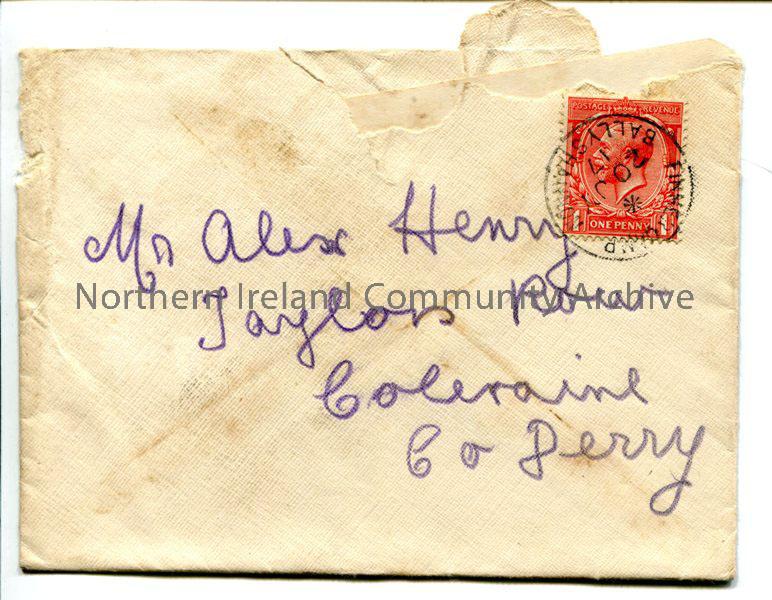 POSTAGE REVENUE
ONE PENNY
Mr Alex Henry
Northern Ireland Community Archive
Taylors Row
Coleraine
Co Derry